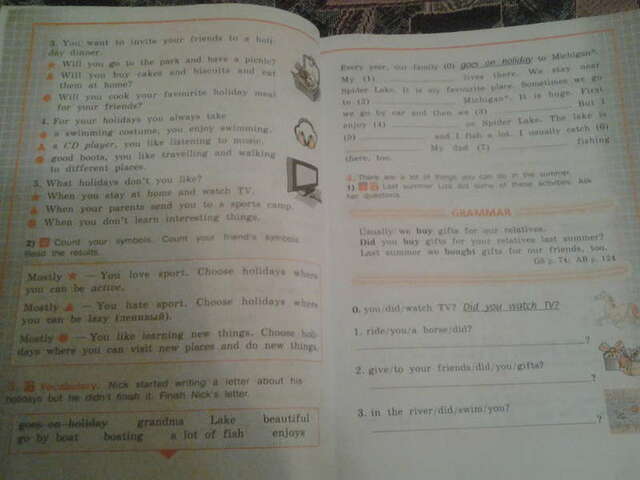 3. You want to invite your friends to a holi-
day dinner.
Will you go to the park and have a picnic?
Will you buy cakes and biscuits and eat
them at home?
Will you cook your favourite holiday meal
for your friends?
4. For your holidays you always take
a swimming costume, you enjoy swimming.
a CD player, you like listening to music.
good boots, you like travelling and walking
in different places.
5. What holidays don't you like?
When you stay at home and watch TV.
When your parents send you to a sports camp.
When you don't learn interesting things.
2) Count your symbols. Count your friend's symbols.
Read the results.
Mostly ★ — You love sport. Choose holidays where
you can be active.
Mostly ▲ — You hate sport. Choose holidays where
you can be lazy (ленивый).
Mostly ● — You like learning new things. Choose holi-
days where you can visit new places and do new things.
3. Vocabulary. Nick started writing a letter about his
holidays but he didn't finish it. Finish Nick's letter.
goes on holiday grandma Lake beautiful
go by boat boating a lot of fish enjoys
Every year, our family (0) goes on holiday to Michigan*.
My (1) ______ lives there. We stay near
Spider Lake. It is my favourite place. Sometimes we go
to (2) ______ Michigan*. It is huge. First
we go by car and then we (3) ______. But I
enjoy (4) ______ on Spider Lake. The lake is
(5) ______ and I fish a lot. I usually catch (6)
______. My dad (7) ______ fishing
there, too.
4. There are a lot of things you can do in the summer.
1) Last summer Lulu did some of these activities. Ask
her questions.
GRAMMAR
Usually we buy gifts for our relatives.
Did you buy gifts for your relatives last summer?
Last summer we bought gifts for our friends, too.
GB p. 74; AB p. 124
0. you/did/watch TV? Did you watch TV?
1. ride/you/a horse/did?
______?
2. give/to your friends/did/you/gifts?
______?
3. in the river/did/swim/you?
______?